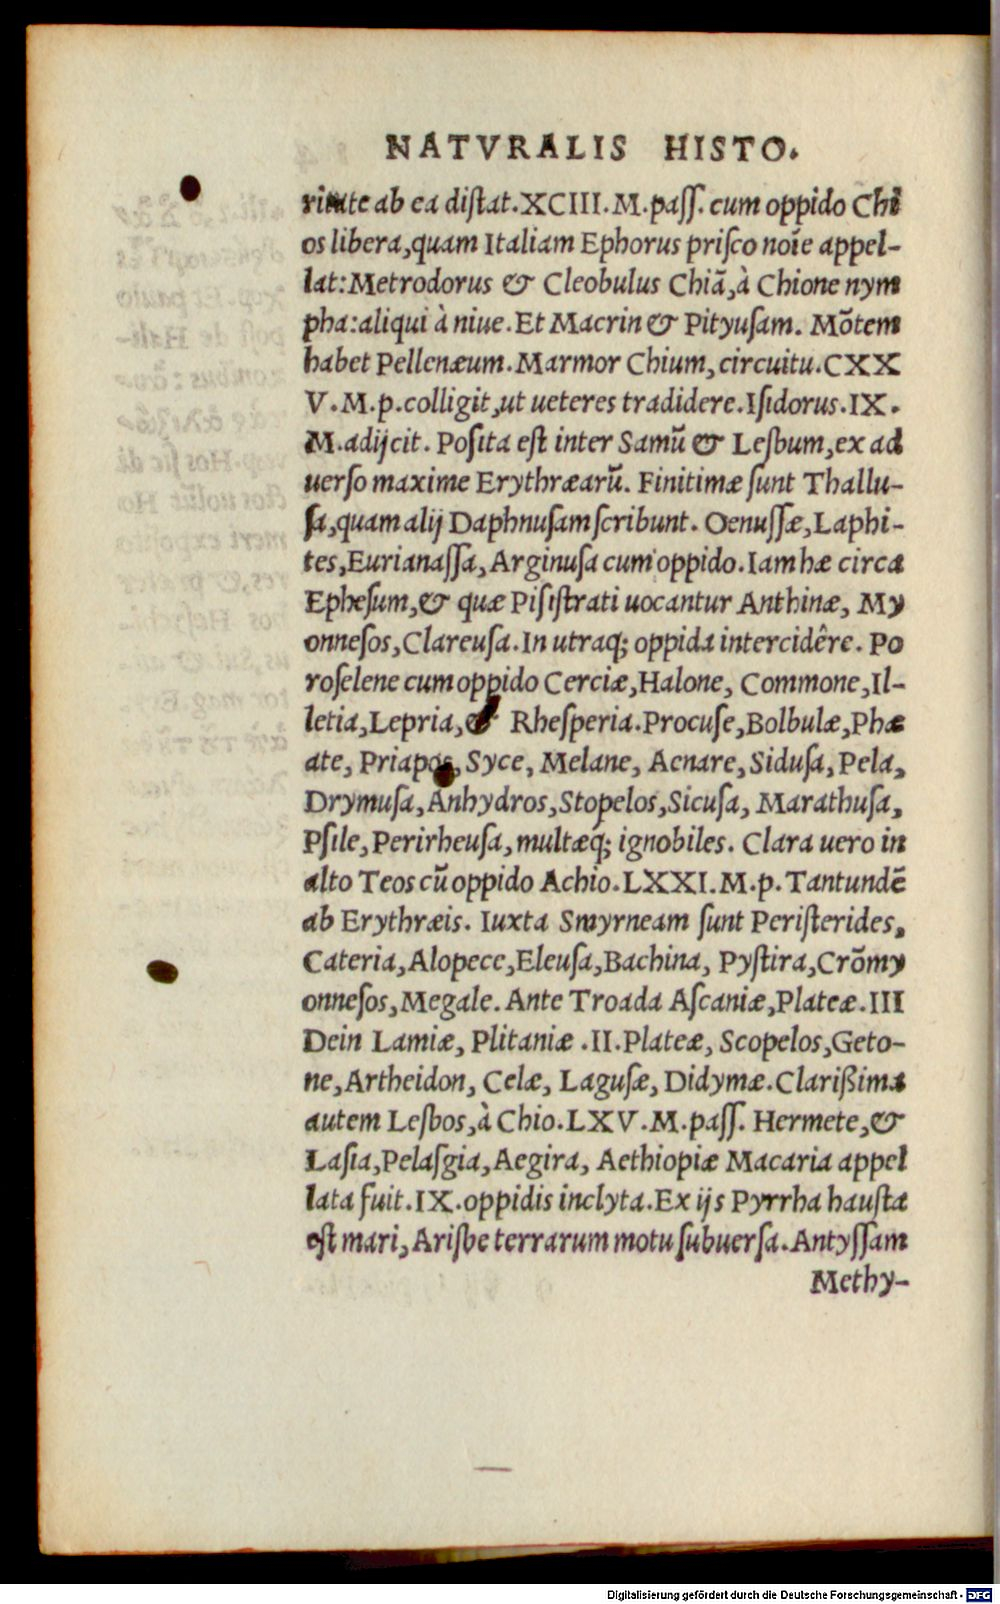 NATVRALIS HISTO.
ritate ab ea diſtat. XCIII. M. paſſ. cum oppido Chi
os libera, quam Italiam Ephorus priſco noīe appel-
lat: Metrodorus & Cleobulus Chiā, à Chione nym
pha: aliqui à niue. Et Macrin & Pityuſam. Mōtem
habet Pellenæum. Marmor Chium, circuitu. CXX
V. M. p. colligit, ut ueteres tradidere. Iſidorus. IX.
M. adijcit. Poſita eſt inter Samū & Leſbum, ex ad
uerſo maxime Erythræarū. Finitimæ ſunt Thallu-
ſa, quam alij Daphnuſam ſcribunt. Oenuſſæ, Laphi-
tes, Eurianaſſa, Arginuſa cum oppido. Iam hæ circa
Epheſum, & quæ Piſiſtrati uocantur Anthinæ, My
onneſos, Clareuſa. In utraq; oppida intercidêre. Po
roſelene cum oppido Cerciæ, Halone, Commone, Il-
letia, Lepria, & Rheſperia. Procuſe, Bolbulæ, Phæ
ate, Priapos, Syce, Melane, Aenare, Siduſa, Pela,
Drymuſa, Anhydros, Stopelos, Sicuſa, Marathuſa,
Pſile, Perirheuſa, multæq; ignobiles. Clara uero in
alto Teos cū oppido Achio. LXXI. M. p. Tantundē
ab Erythræis. Iuxta Smyrneam ſunt Periſterides,
Cateria, Alopece, Eleuſa, Bachina, Pyſtira, Crōmy
onneſos, Megale. Ante Troada Aſcaniæ, Plateæ. III
Dein Lamiæ, Plitaniæ .II. Plateæ, Scopelos, Geto-
ne, Artheidon, Celæ, Laguſæ, Didymæ. Clarißima
autem Leſbos, à Chio. LXV. M. paſſ. Hermete, &
Laſia, Pelaſgia, Aegira, Aethiopiæ Macaria appel
lata fuit. IX. oppidis inclyta. Ex ijs Pyrrha hauſta
eſt mari, Ariſbe terrarum motu ſubuerſa. Antyſſam
Methy-
Digitalisierung gefördert durch die Deutsche Forschungsgemeinschaft - DFG